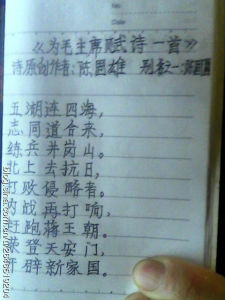 No:
Date
《为毛主席赋诗一首》
诗原创作者:陈国雄
五湖连四海,
志同道合来,
练兵井岗山。
北上去抗日,
打败侵略者。
内战再打响,
赶跑蒋王朝。
荣登天安门,
开辟新家国。